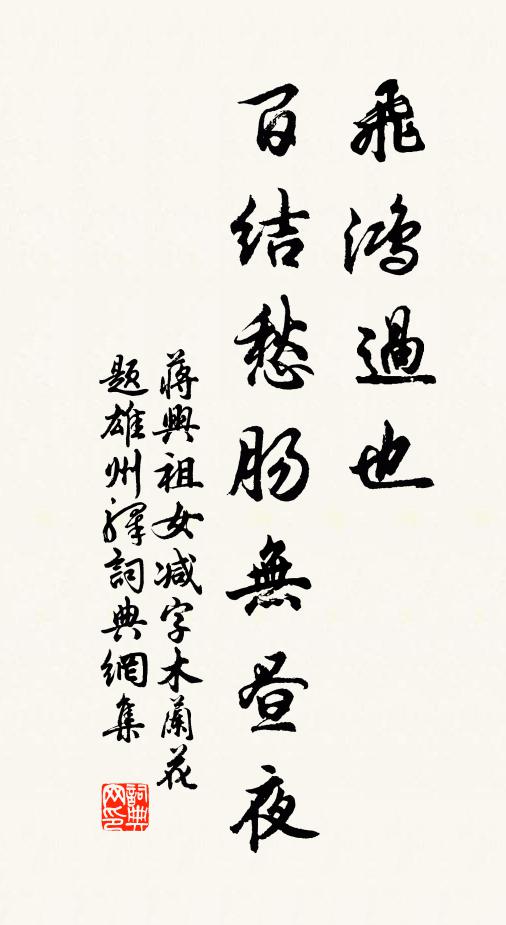 飛鴻過也
百結愁腸無晝夜
蔣興祖女减字木蘭花
題雄州驛詞典網集
詞典
网印